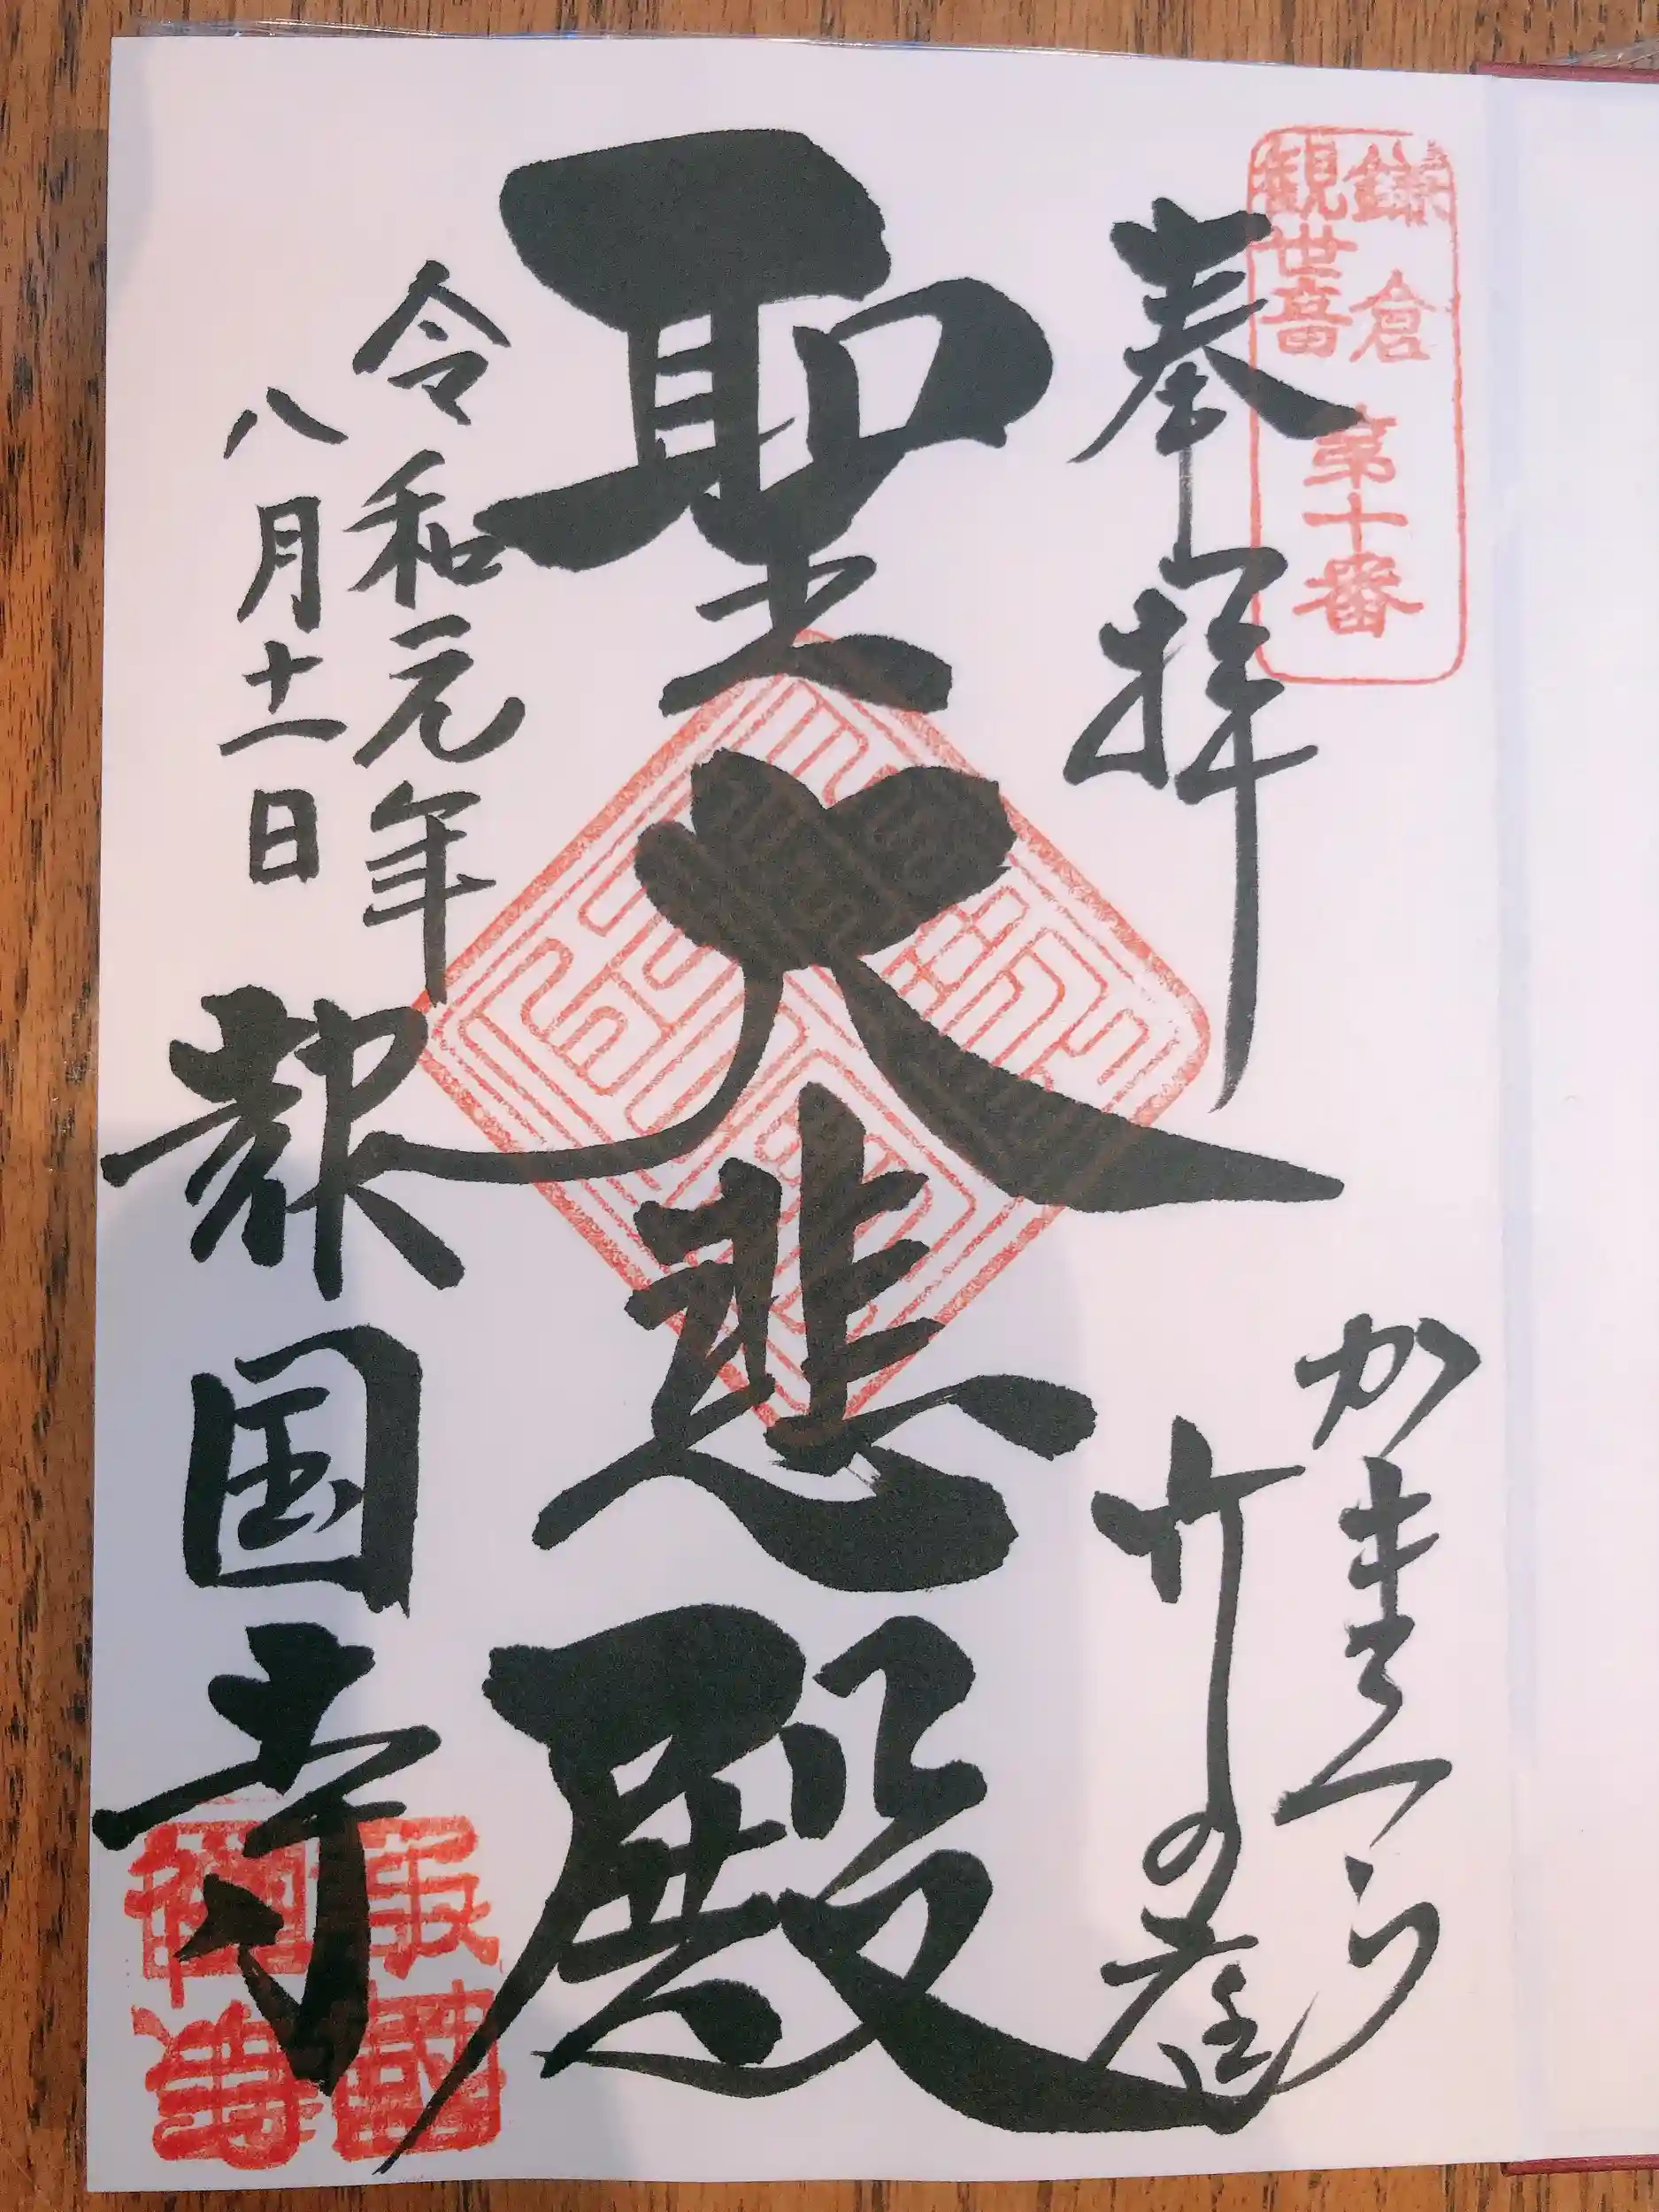 鎌倉
観世音
第十番
奉拝
かまくら
竹の庭
聖大悲殿
令和元年
八月十一日
報国寺
報国
禅寺